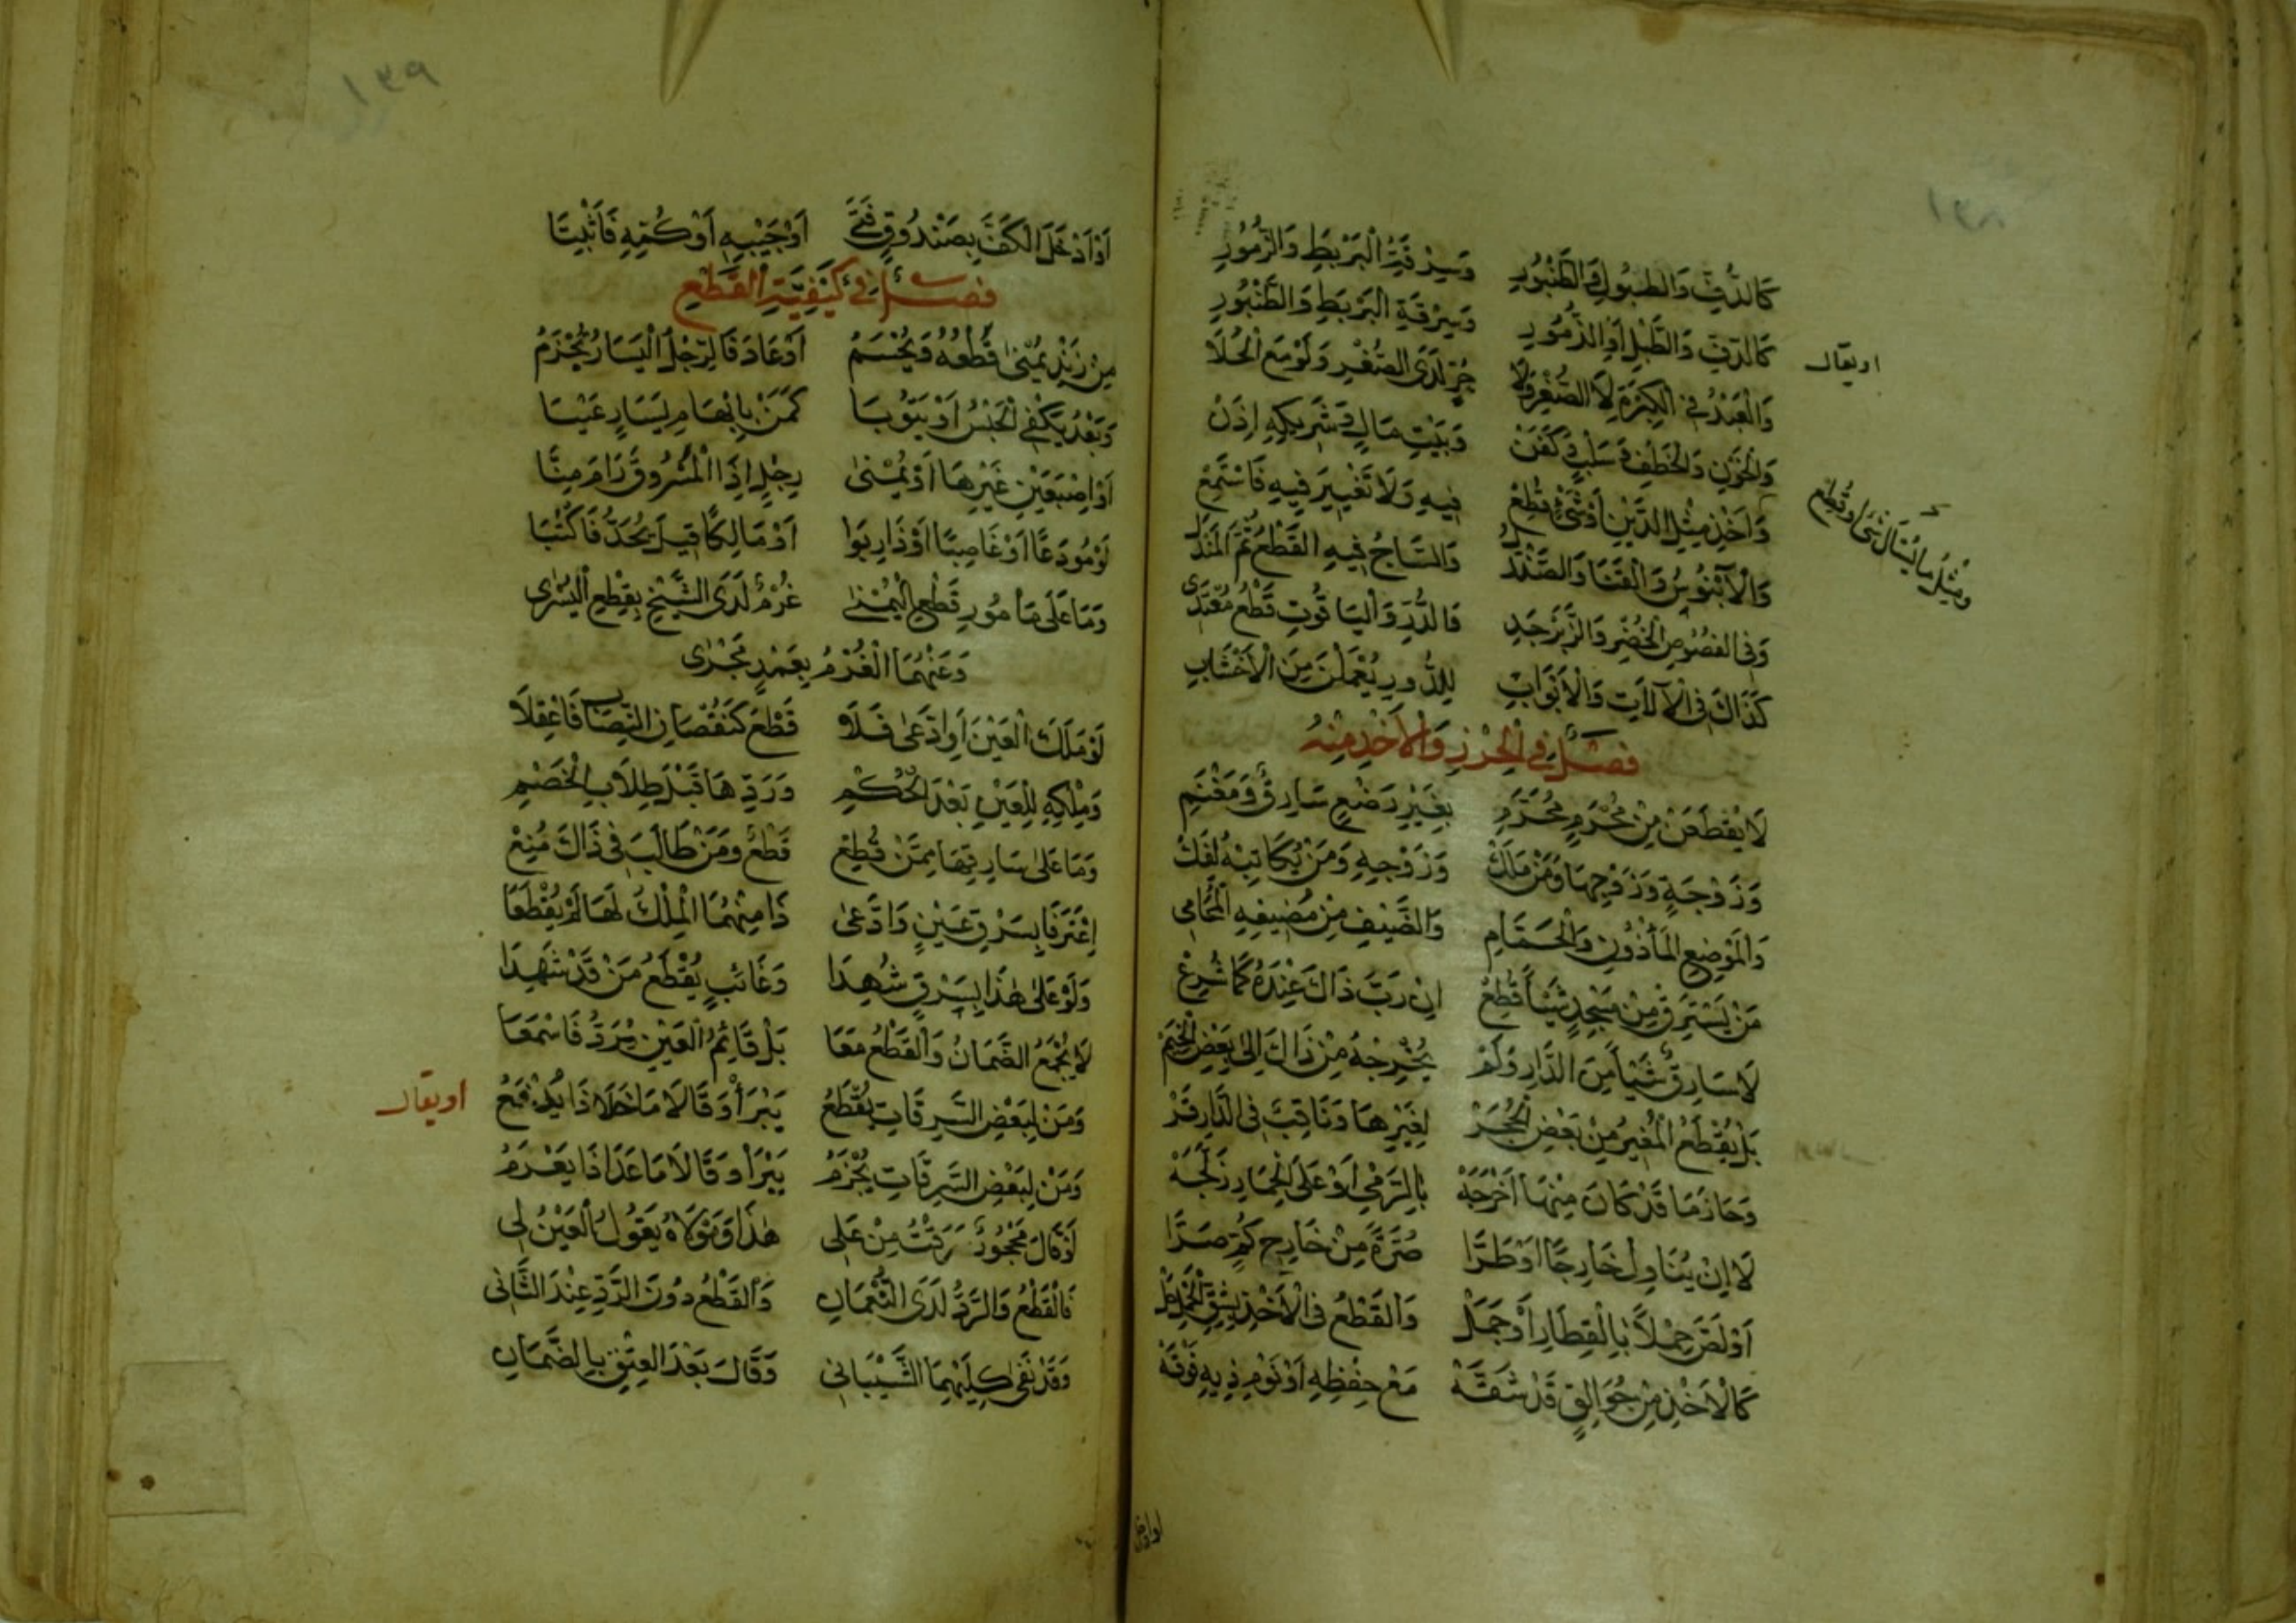 ١٣٨
كَالدُّفِّ وَالطُّبُولِ وَالطُّنْبُورِ وَسِرْقَةِ الْبَرْبَطِ وَالزُّمُورِ
كَالدُّفِّ وَالطَّبْلِ أَوِ الزُّمُورِ وَسِرْقَةِ الْبَرْبَطِ وَالطُّنْبُورِ
او يقال
وَالْعَبْدُ فِي الْكِبَرِ لَا الصُّغْرِ وَلَا حُرٍّ لَدَى الصُّغْرِ وَلَوْ مَعَ الْحُلَا
وَالْخَوْنِ وَالْخَطْفِ وَسَلْبِ كَفَنْ وَبَيْتِ مَالٍ وَشَرِيكِهِ اِذَنْ
وَاَخْذِ مِثْلِ الدَّيْنِ أَوْ شَيْءٍ قُطِعْ فِيهِ وَلَا تَغْيِيرَ فِيهِ فَاسْتَمِعْ
وَمِثْلُ مَا يُسَالُ شَيْ اوقُطِع
وَالْآبَنُوسُ وَالْقَنَا وَالصَّنْدَلُ وَالسَّاجُ فِيهِ الْقَطْعُ ثُمَّ الْمَنْدَلُ
وَفِي الْفُصُوصِ الْخُضْرِ وَالزَّبَرْجَدِ فَالدُّرِّ وَالْيَاقُوتِ قَطْعُ مُعْتَدِى
كَذَاكَ فِي الْآلَاتِ وَالْاَبْوَابِ لِلدُّورِ يُعْمَلْنَ مِنَ الْاَخْشَابِ
فصل فِي الْحِرْزِ وَالْاَخْذِ مِنْهُ
لَا يُقْطَعَنْ مِنْ مَحْرَمٍ مُحَرَّمِ بِغَيْرِ رَضْعٍ سَارِقٌ وَمَغْنَمِ
وَزَوْجَةٍ وَزَوْجِهَا وَمَنْ مَلَكْ وَزَوْجِهِ وَمَنْ يُكَاتِبْهُ لَفَكْ
وَالْمَوْضِعِ الْمَأْذُونِ وَالْحَمَّامِ وَالضَّيْفِ مِنْ مُضِيفِهِ الْمُحَامِي
مَنْ يَسْتَرِقْ مِنْ مَسْجِدٍ شَيْئًا قُطِعْ اِنْ رَبُّ ذَاكَ عِنْدَهُ كَمَا شُرِعْ
لَا سَارِقٌ شَيْاً مِنَ الدَّارِ وَلَمْ يُخْرِجْهُ مِنْ ذَاكَ اِلَى بَعْضِ
بَلْ يُقْطَعُ الْمُغِيرُ مِنْ بَعْضِ الْحُجَرْ لِغَيْرِهَا وَنَاقِبٌ فِي الدَّارِ قَرْ
وَحَازَ مَا قَدْ كَانَ مِنْهَا اَخْرَجَهْ بِالرَّمْيِ اَوْ عَلَى الْحِمَارِ زَلَجَهْ
لَا اِنْ يُنَاوِلْ خَارِجًا اَوْ طَرَّا صُرَّةً مِنْ خَارِجِ كُمٍّ صَرَّا
اَوْ لَصَّ حِمْلًا بِالْقِطَارِ اَوْ جَمَلْ وَالْقَطْعُ فِي الْاَخْذِ بِشَقِّ
كَالْاَخْذِ مِنْ جُوَالِقٍ قَدْ شَقَّهْ مَعْ حِفْظِهِ اَوْ نَوْمِ ذِيهِ فَوْقَهْ
١٣٩
اَوْ اَدْخَلَ الْكَفَّ بِصَنْدُوقِ فَتَى اَوْ جَيْبِهِ اَوْ كُمِّهِ فَأَثْبِتَا
فصل فِي كَيْفِيَّةِ الْقَطْعِ
مِنْ زَنْدِ يُمْنَى قَطْعُهُ وَيُحْسَمُ اَوْ عَادَ فَالرِّجْلُ الْيَسَارُ تُجْزَمُ
وَبَعْدُ يَكْفِي الْحَبْسُ اَوْ يَتُوبَا كَمَنْ بِاِبْهَامِ يَسَارٍ عِيبَا
اَوْ اِصْبَعَيْنِ غَيْرِهَا اَوْ يُمْنَى رِجْلٍ اِذَا الْمَسْرُوقُ رَامَ مِنَّا
لَوْ مُودَعًا اَوْ غَاصِبًا اَوْ ذَا رِبَوا اَوْ مَالِكًا قِيلَ يُحَدُّ فَاكْتُبَا
وَمَا عَلَى مَأْمُورِ قَطْعِ الْيُمْنَى غُرْمٌ لَدَى الشَّيْخِ بِقَطْعِ الْيُسْرَى
وَعَنْهُمَا الْغُرْمُ بِعَمْدٍ مُجْرَى
لَوْ مَلَكَ الْعَيْنَ اَوِ ادَّعَى فَلَا قَطْعَ كَنُقْصَانِ النِّصَابِ فَاعْقِلَا
وَمِلْكِهِ لِلْعَيْنِ بَعْدَ الْحُكْمِ وَرَدِّهَا قَبْلَ طِلَابِ الْخَصْمِ
وَمَا عَلَى سَارِقِهَا مِمَّنْ قُطِعْ قَطْعٌ وَمَنْ طَالَبَ فِي ذَاكَ مُنِعْ
اِعْتَرَفَا بِسَرْقِ عَيْنٍ وَادَّعَى ذَا مِنْهُمَا الْمِلْكُ لَهَا لَمْ يُقْطَعَا
وَلَوْ عَلَى هٰذَا بِسَرْقٍ شُهِدَا وَغَائِبٍ يُقْطَعُ مَنْ قَدْ شَهِدَا
لَا يُجْمَعُ الضَّمَانُ وَالْقَطْعُ مَعَا بَلْ قَائِمُ الْعَيْنِ يُرَدُّ فَاسْمَعَا
وَمَنْ لِبَعْضِ السَّرِقَاتِ يُقْطَعُ يَبْرَأْ وَقَالَا مَا خَلَا ذَا يَدْفَعُ
او يقال
وَمَنْ لِبَعْضِ السَّرِقَاتِ يُجْزَمُ يَبْرَأْ وَقَالَا مَا عَدَا ذَا يَغْرَمُ
اَوْ قَالَ مَحْجُورٌ سَرَقْتُ مِنْ عَلِي هٰذَا وَمَوْلَاهُ يَقُولُ الْعَيْنُ لِي
فَالْقَطْعُ وَالرَّدُّ لَدَى النُّعْمَانِ وَالْقَطْعُ دُونَ الرَّدِّ عِنْدَ الثَّانِي
وَقَدْ نَفَى كِلَيْهِمَا الشَّيْبَانِي وَقَالَ بَعْدَ الْعِتْقِ بِالضَّمَانِ